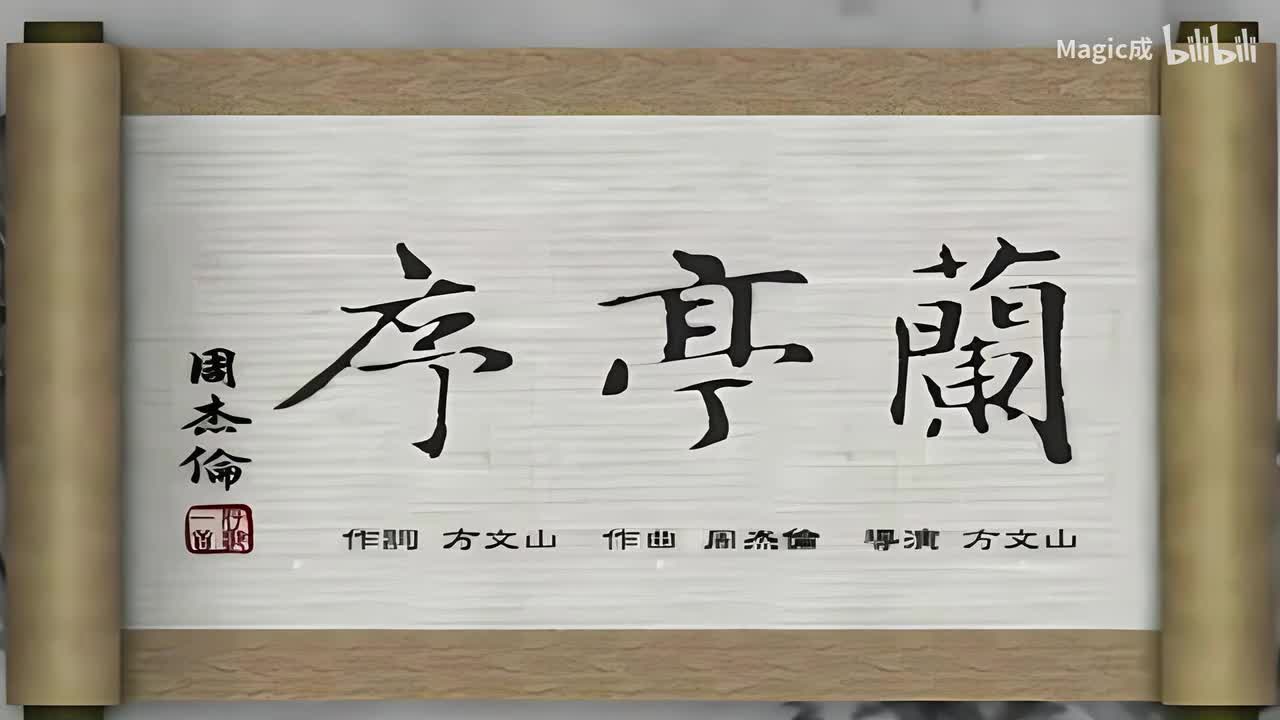 Magic成 bilibili
蘭亭序
周杰倫
作詞 方文山 作曲 周杰倫 導演 方文山